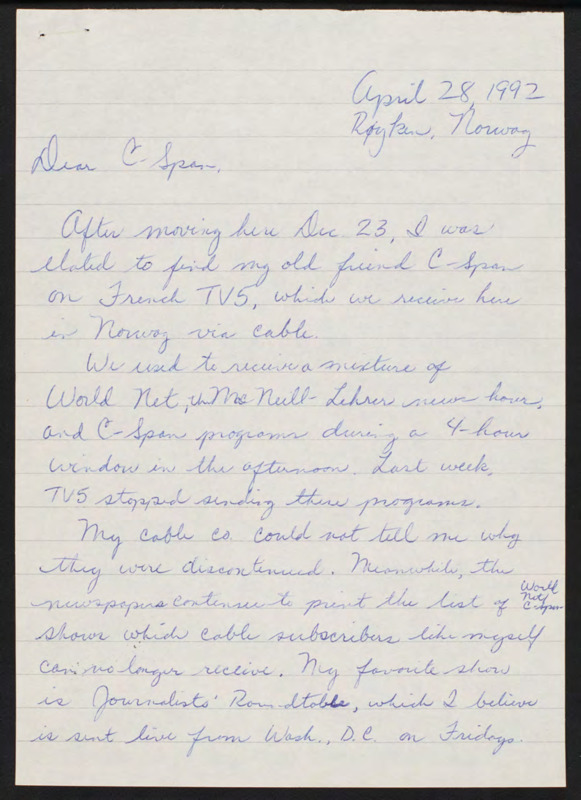 April 28, 1992
Røyken, Norway
Dear C-Span,
After moving here Dec. 23, I was
elated to find my old friend C-Span
on French TV5, which we receive here
in Norway via cable.
We used to receive a mixture of
World Net, the Mac Neill-Lehrer news hour,
and C-Span programs during a 4-hour
window in the afternoon. Last week,
TV5 stopped sending these programs.
My cable co. could not tell me why
they were discontinued. Meanwhile, the
newspapers continue to print the list of World Net/ C-span
shows which cable subscribers like myself
can no longer receive. My favorite show
is Journalists' Roundtable, which I believe
is sent live from Wash., D.C. on Fridays.